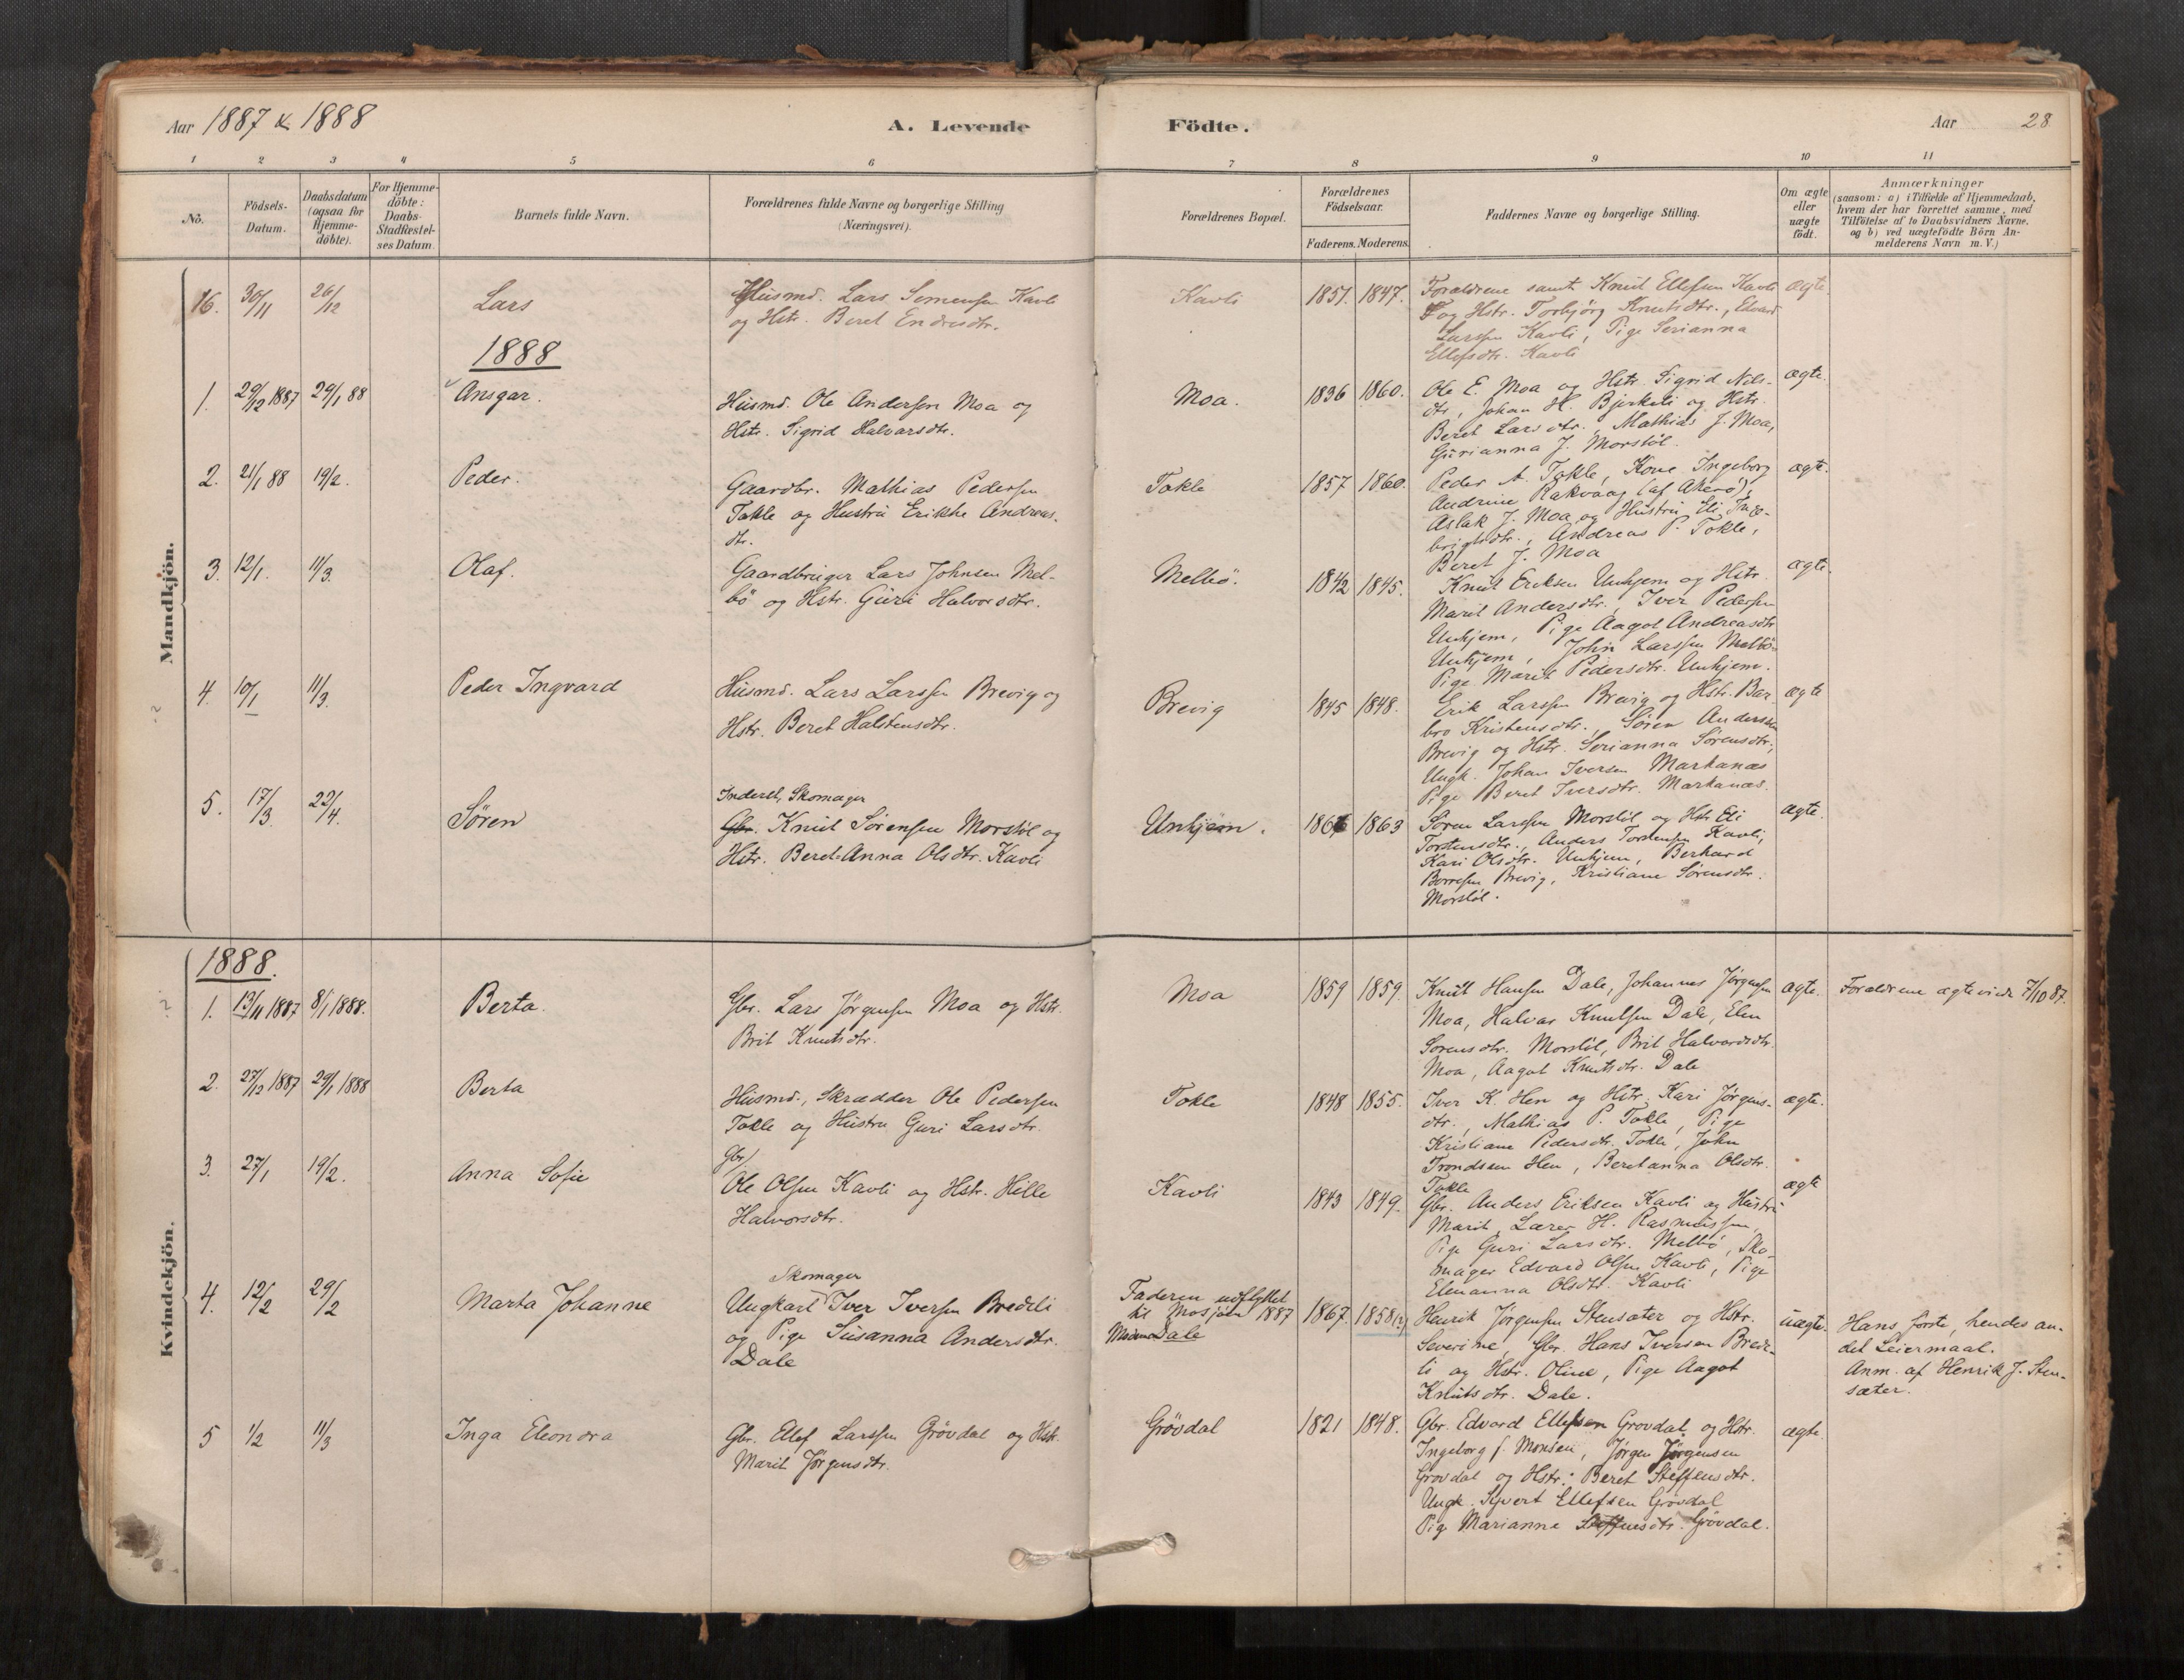 Aar 1887 & 1888
A. Levende
Födte.
Aar
28
1
2
3
4
5
6
7
8
9
10
11
No.
Födsels-
Datum.
Daabsdatum
(ogsaa for
Hjemme-
döbte).
For Hjemme-
döbte:
Daabs-
Stadfæstel-
ses Datum
Barnets fulde Navn.
Forældrenes fulde Navne og borgerlige Stilling
(Næringsvei).
Forældrenes Bopæl.
Forældrenes
Födselsaar.
Faderens. Moderens.
Faddernes Navne og borgerlige Stilling.
Om ægte
eller
uægte
födt.
Anmærkninger
(saasom: a) i Tilfælde af Hjemmedaab,
hvem der har forrettet samme, med
Tilföielse af to Daabsvidners Navne,
og b) ved uægtefödte Börn An-
melderens Navn m. V.)
Mandkjön.
16. 30/11 26/12 Lars
Husmd. Lars Simensen Kavli
og Hstr. Beret Endresdtr.
Kavli 1851. 1847.
Forældrene samt Knut Ellefsen Kavli
og Hstr. Torbjørg Knutsdtr., Edvard
Larssen Kavli, Pige Serianna
Ellefsdtr. Kavli
ægte.
1888
1. 29/12 1887 29/1 88 Ansgar.
Husmd. Ole Andersen Moa og
Hstr. Sigrid Halvarsdtr.
Moa. 1836 1860.
Ole E. Moa og Hstr. Sigrid Nils-
dtr., Johan H. Bjerkeli og Hstr.
Beret Larsdtr. Mathias J. Moa,
Gurianna J. Morstöl.
ægte.
2. 21/1 88 19/2. Peder.
Gaardbr. Mathias Pedersen
Tokle og Hustru Erikke Andreas-
dtr.
Tokle 1857 1860.
Peder A. Tokle, Kone Ingeborg
Andrine Rakvaag (af Akerö),
Aslak J. Moa og Hustru Eli Inge-
brigtsdtr., Andreas P. Tokle,
Beret J. Moa
ægte.
3. 12/1. 11/3. Olaf.
Gaardbruger Lars Johnsen Mel-
bö og Hstr. Guri Halvorsdtr.
Melbö. 1842 1845.
Knut Eriksen Unhjem og Hstr.
Marit Andersdtr., Iver Pedersen
Unhjem, Pige Aagot Andreasdtr
Unhjem, John Larssen Melbö
Pige Marit Pedersdtr. Unhjem.
ægte.
4. 10/1 11/3. Peder Ingvard
Husmd. Lars Larssen Brevig og
Hstr. Beret Halstensdtr.
Brevig 1845 1848.
Erik Larssen Brevig og Hstr. Bar-
bro Kristensdtr., Sören Andersen
Brevig og Hstr. Serianna Sörensdtr.,
Ungk. Johan Iversen Markanæs
Pige Beret Iversdtr. Markanæs.
ægte
5. 17/3. 22/4. Sören
Inderst, Skomager
Gbr. Knut Sörensen Morstöl og
Hstr. Beret-Anna Olsdtr. Kavli
Unhjem. 1863
Sören Larssen Morstöl og Hstr. Eli
Torstensdtr., Anders Torstensen Kavli,
Kari Olsdtr. Unhjem, Berhard
Borresen Brevig, Kristiane Sörensdtr.
Morstöl.
ægte.
Kvindekjön.
1888.
1. 13/11 1887 8/1 1888. Berta.
Gbr. Lars Jörgensen Moa og Hstr.
Brit Knutsdtr.
Moa 1859 1859.
Knut Hansen Dale, Johannes Jörgensen
Moa, Halvar Knutsen Dale, Elen
Sorensdtr. Morstöl, Brit Halvardsdtr.
Moa, Aagot Knutsdtr. Dale
ægte.
Forældrene ægteviede 7/10 87.
2. 27/12 1887 29/1 1888 Berta
Husmd., Skrædder Ole Pedersen
Tokle og Hustru Guri Larsdtr.
Tokle 1848 1855.
Iver K. Hen og Hstr. Kari Jörgens-
dtr., Mathias P. Tokle, Pige
Kristiane Pedersdtr. Tokle, John
Trondsen Hen, Beretanna Olsdtr.
Tokle
ægte.
3. 27/1 19/2. Anna Sofie
Gbr.
Ole Olsen Kavli og Hstr. Hille
Halvorsdtr.
Kavli 1843 1849.
Gbr. Anders Eriksen Kavli og Hustru
Marit, Lærer H. Rasmussen,
Pige Guri Larsdtr. Melbö, Sko-
mager Edvard Olsen Kavli, Pige
Elenanna Olsdtr. Kavli
ægte
4. 12/2 29/2 Marta Johanne
Skomager
Ungkarl Iver Iversen Bredeli
og Pige Susanna Andersdtr.
Dale
Faderen udflyttet
til Mosjöen 1887
Moderen Dale
1867. 1858(?)
Henrik Jörgensen Stensæter og Hstr.
Severine, Gbr. Hans Iversen Brede-
li og Hstr. Oline, Pige Aagot
Knutsdtr. Dale.
uægte.
Hans förste, hendes an-
det Leiermaal.
Anm. af Henrik J. Sten-
sæter.
5 1/2 11/3 Inga Eleonora
Gbr. Ellef Larssen Grövdal og Hstr.
Marit Jörgensdtr.
Grövdal 1821 1848.
Gbr. Edvard Ellefsen Grövdal og Hstr.
Ingeborg f. Monsen, Jörgen Jörgensen
Grövdal og Hstr. Beret Steffensdtr.
Ungk. Syvert Ellefsen Grövdal
Pige Marianne Steffensdtr. Grövdal.
ægte.